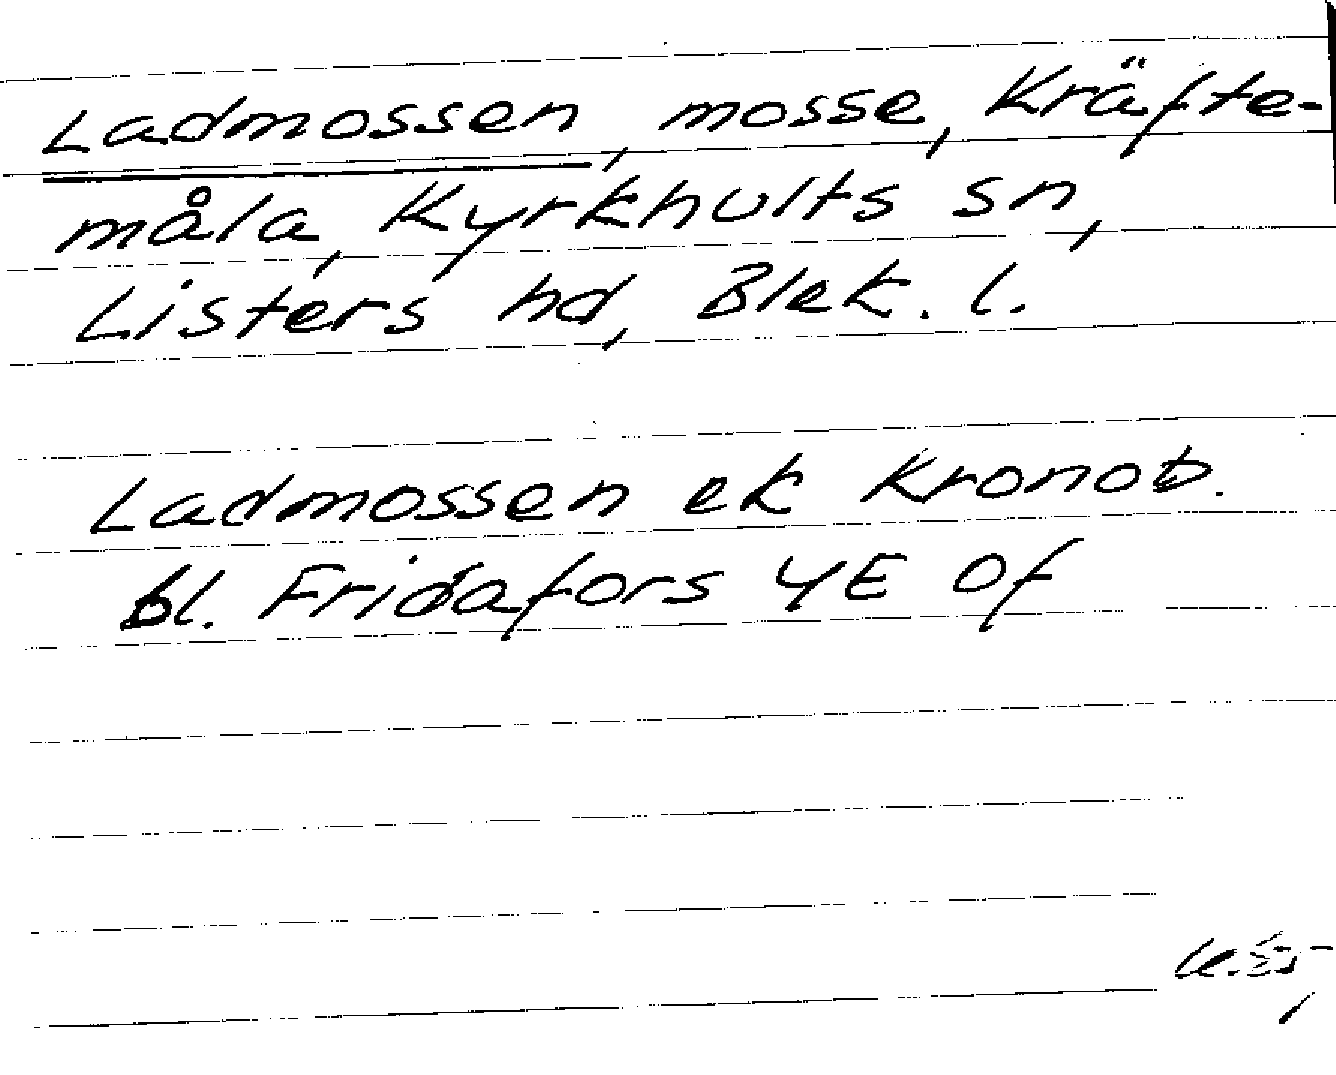 Ladmossen, mosse, Kräfte-
måla, Kyrkhults sn,
Listers hd, Blek. l.
Ladmossen ek Kronob.
bl. Fridafors 4E Of